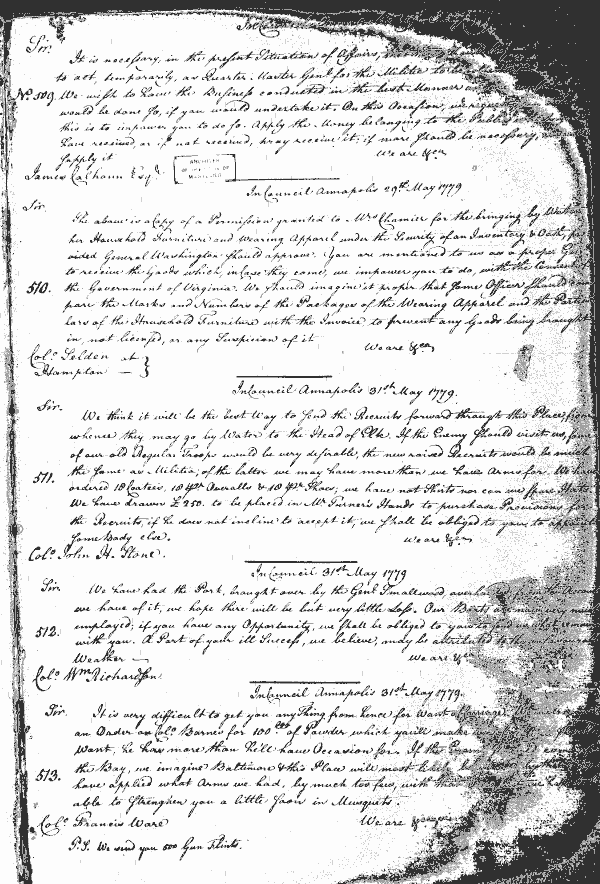 In C
Sir.
It is necessary, in the present Situation of Affairs,
to act, temporarily, as Quarter Master Genl for the Militia to be
No. 509. We wish to have the Business conducted in the best Manner
would be done so, if you would undertake it. On this Occasion, we request
this is to impower you to do so. Apply the Money belonging to the Public
have received, or if not received, pray receive it; if more should be necessary,
supply it We are &ca
James Calhoun Esqr.
ARCHIVES
MARYLAND
In Council Annapolis 29th May 1779
Sir.
The above is a Copy of a Permission granted to Mrs Chamier for the bringing by Water
her Household Furniture and Wearing Apparel under the Security of an Inventory & Oath, pro
vided General Washington should approve. You are mentioned to us as a proper
to receive the Goods which, in Case they come, we impower you to do, with the Consent of
510. the Government of Virginia. We should imagine it proper that some Officer should com
pare the Marks and Numbers of the Packages of the Wearing Apparel and the Particu
lars of the Household Furniture with the Invoice to prevent any Goods being brought
in, not licensed, or any Suspicion of it We are &ca
Colo. Selden at
Hampton —
In Council Annapolis 31st May 1779.
Sir.
We think it will be the best Way to send the Recruits forward through this Place, from
whence they may go by Water to the Head of Elk. If the Enemy should visit us, some
of our old Regular Troops would be very desirable, the new raised Recruits would be much
the same as Militia, of the latter we may have more than we have Arms for. We have
511. ordered 18 Coatees, 18 pr Overalls & 18 pr Shoes, we have not Shirts nor can we spare Hats.
We have drawn £250. to be placed in Mr Turner's Hands to purchase Provisions for
the Recruits, if he does not incline to accept it, we shall be obliged to you, to appoint
some Body else. We are &ca
Colo. John H. Stone.
In Council 31st May 1779
Sir. We have had the Pork, brought over by the Genl Smallwood, overhauled
we have of it, we hope there will be but very little Loss. Our Boats are
employed; if you have any Opportunity, we shall be obliged to you to send
512. with you. A Part of your ill Success, we believe, may be attributed to the
Weather — We are &ca
Colo. Wm Richardson
In Council Annapolis 31st May 1779.
Sir. It is very difficult to get you any Thing from hence for Want of Carriage.
an Order on Colo. Barnes for 100 lbs of Powder which you'll make
Want, he has more than he'll have Occasion for. If the Enemy
the Bay, we imagine Baltimore & this Place will most likely be
513. have applied what Arms we had, by much too few, with
able to strengthen you a little soon in Musquets.
Colo. Francis Ware We are &ca
P.S. We send you 500 Gun Flints.